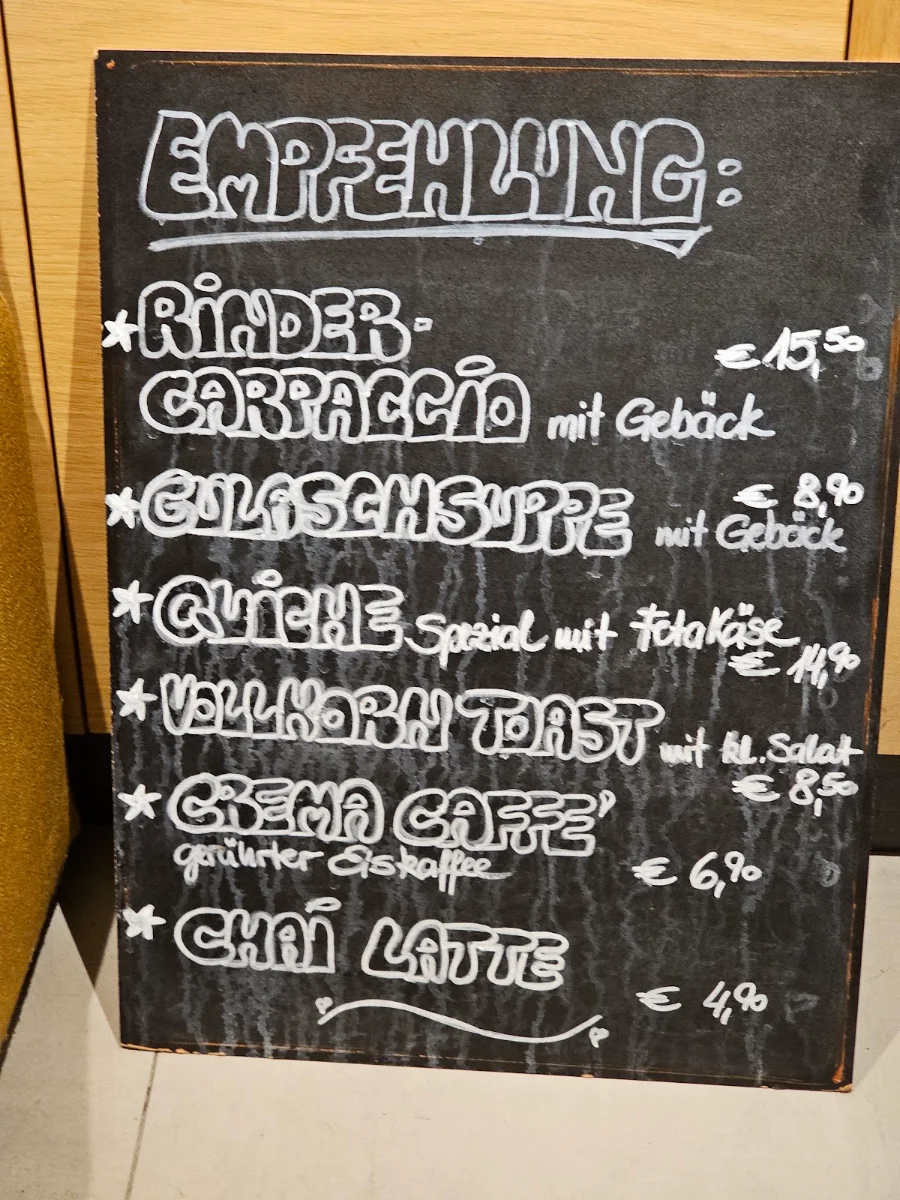 EMPFEHLUNG:
* RINDER-
€ 15,50
CARPACCIO mit Gebäck
€ 8,90
* GULASCHSUPPE mit Gebäck
* QUICHE Spezial mit Fetakäse
€ 14,90
* VOLLKORN TOAST mit kl. Salat
€ 8,50
* CREMA CAFFE'
gerührter Eiskaffee € 6,90
* CHAI LATTE
€ 4,90